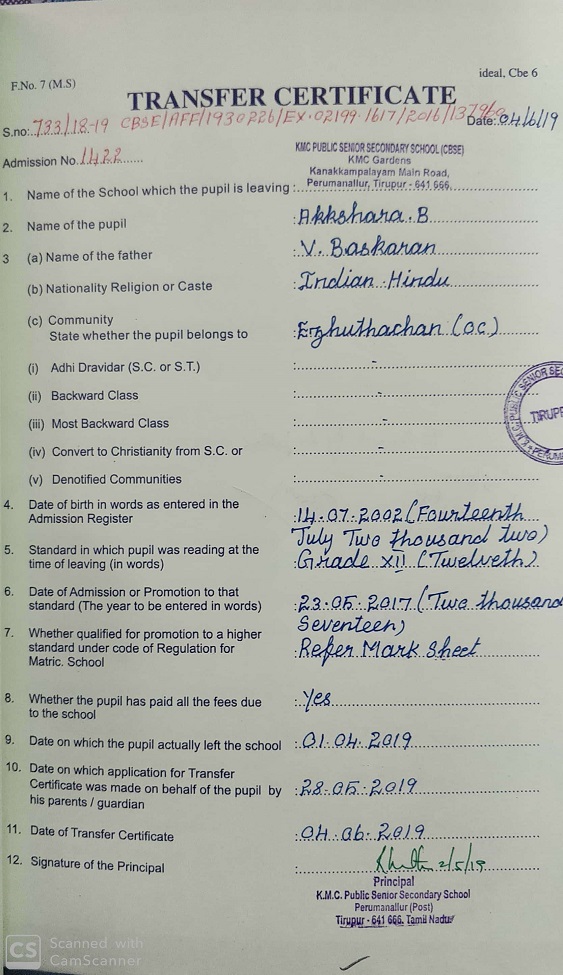 F.No. 7 (M.S)
ideal, Cbe 6
TRANSFER CERTIFICATE
S.no:.733/18-19 CBSE/AFF/1930226/EX-02199-1617/2016/
Date:.04/6/19
Admission No.1422......
KMC PUBLIC SENIOR SECONDARY SCHOOL (CBSE)
KMC Gardens
Kanakkampalayam Main Road,
Perumanallur, Tirupur - 641 666.
1. Name of the School which the pupil is leaving :
2. Name of the pupil : Akkshara.B
3 (a) Name of the father : V. Baskaran
(b) Nationality Religion or Caste : Indian Hindu
(c) Community
State whether the pupil belongs to : Ezhuthachan (oc)
(i) Adhi Dravidar (S.C. or S.T.) : -
(ii) Backward Class : -
(iii) Most Backward Class : -
(iv) Convert to Christianity from S.C. or : -
(v) Denotified Communities : -
4. Date of birth in words as entered in the
Admission Register : 14.07.2002 (Fourteenth
July Two thousand two)
5. Standard in which pupil was reading at the
time of leaving (in words) : Grade XII (Twelveth)
6. Date of Admission or Promotion to that
standard (The year to be entered in words) : 23.05.2017 (Two thousand
Seventeen)
7. Whether qualified for promotion to a higher
standard under code of Regulation for
Matric. School : Refer Mark Sheet
8. Whether the pupil has paid all the fees due
to the school : Yes
9. Date on which the pupil actually left the school : 01.04.2019
10. Date on which application for Transfer
Certificate was made on behalf of the pupil by
his parents / guardian : 28.05.2019
11. Date of Transfer Certificate : 04.06.2019
12. Signature of the Principal : 2/5/19
Principal
K.M.C. Public Senior Secondary School
Perumanallur (Post)
Tirupur - 641 666. Tamil Nadu
CS Scanned with
CamScanner